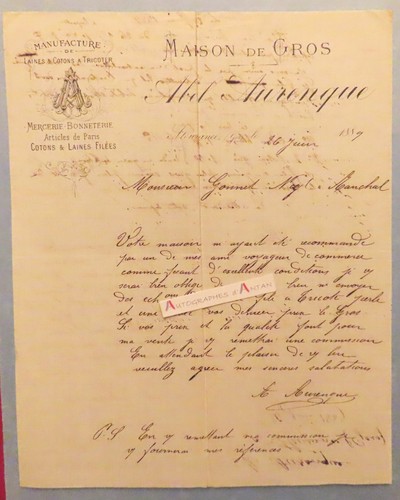 MANUFACTURE
DE
LAINES & COTONS A TRICOTER
MERCERIE-BONNETERIE
Articles de Paris
COTONS & LAINES FILÉES
MAISON DE GROS
Abel Aurenque
le 26 Juin 1889
Monsieur Gonnet Negt à Ranchal
Votre maison m ayant été recommandé
par un de mes ami voyageur de commerce
comme d'excellente conditions je v
serai bien obligé de bien m envoyer
des à tricoté
et vos dernier prix le Gros
Si vos prix et la qualité font pour
ma vente je v remettrai une commission
En attendant le plaisir de v lire
veuillez agréer mes sincères salutations
A Aurenque
P.S En v remettant ma commission
je v fournirai mes références
AUTOGRAPHES d'ANTAN